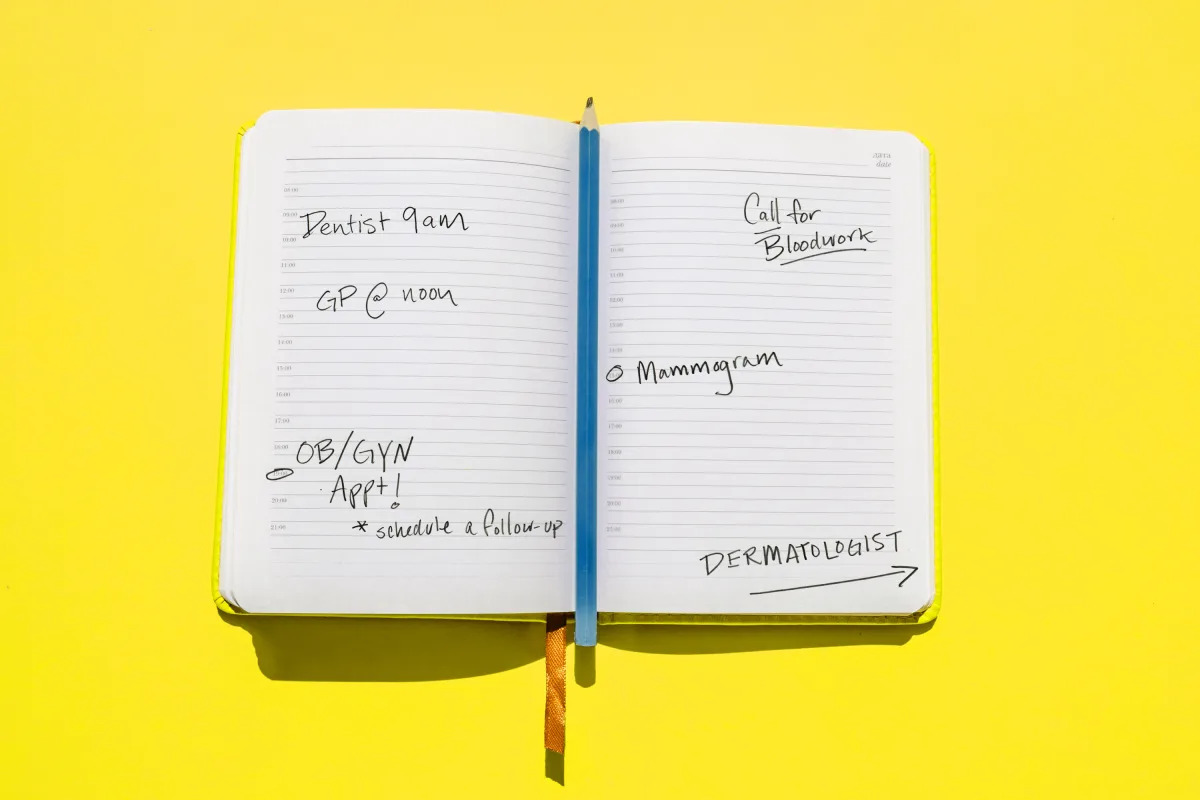 08:00
09:00
Dentist 9am
10:00
11:00
12:00
GP @ noon
13:00
14:00
15:00
16:00
17:00
18:00
OB/GYN
Appt!
20:00
* schedule a follow-up
21:00
date
08:00
Call for
09:00
Bloodwork
10:00
11:00
12:00
13:00
14:00
Mammogram
16:00
17:00
18:00
19:00
20:00
21:00
DERMATOLOGIST